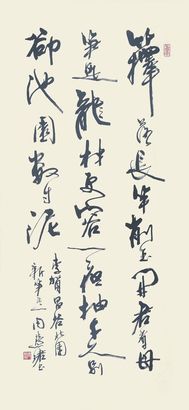 籜落長竿削玉開君看母
筍是龍材更容一夜抽千尺別
卻池園數寸泥
李賀昌谷北園
新筍之一周慧珺